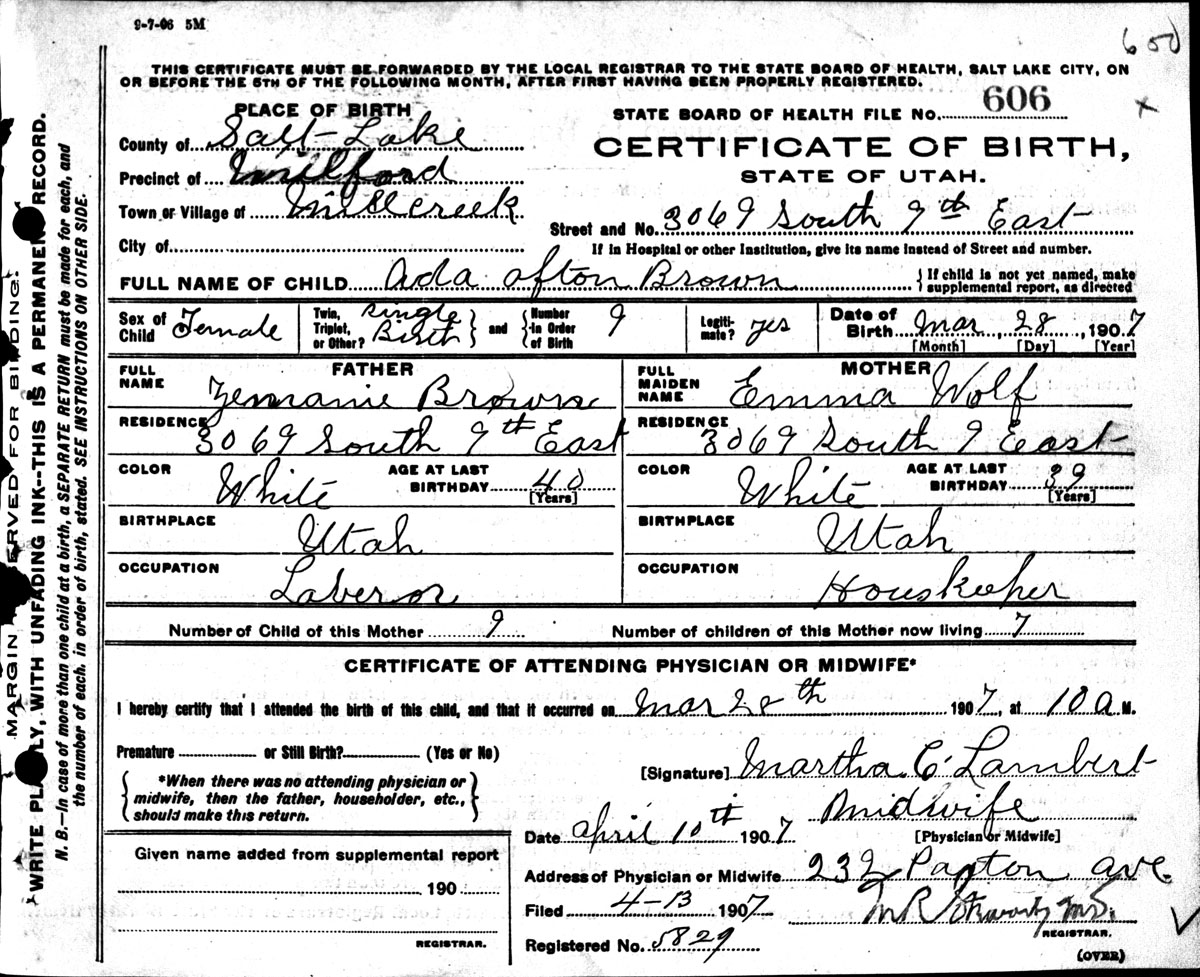 9-7-06 5M
600
THIS CERTIFICATE MUST BE FORWARDED BY THE LOCAL REGISTRAR TO THE STATE BOARD OF HEALTH, SALT LAKE CITY, ON
OR BEFORE THE 5TH OF THE FOLLOWING MONTH, AFTER FIRST HAVING BEEN PROPERLY REGISTERED.
PLACE OF BIRTH
STATE BOARD OF HEALTH FILE NO. 606
County of Salt Lake
CERTIFICATE OF BIRTH,
Precinct of Milford
STATE OF UTAH.
Town or Village of Millcreek
Street and No. 3069 South 9th East
City of
If in Hospital or other Institution, give its name instead of Street and number.
FULL NAME OF CHILD Ada Afton Brown
If child is not yet named, make supplemental report, as directed
Sex of Child Female
Twin, Triplet, or Other? Single Birth and Number in Order of Birth 9
Legitimate? yes
Date of Birth Mar 28, 1907
[Month] [Day] [Year]
FATHER
FULL NAME Brown
RESIDENCE 3069 South 9th East
COLOR White AGE AT LAST BIRTHDAY 40 [Years]
BIRTHPLACE Utah
OCCUPATION Laberor
MOTHER
FULL MAIDEN NAME Emma Wolf
RESIDENCE 3069 South 9 East
COLOR White AGE AT LAST BIRTHDAY 39 [Years]
BIRTHPLACE Utah
OCCUPATION Houskeeper
Number of Child of this Mother 9 Number of children of this Mother now living 7
CERTIFICATE OF ATTENDING PHYSICIAN OR MIDWIFE*
I hereby certify that I attended the birth of this child, and that it occurred on Mar 28th 1907, at 10 a M.
Premature or Still Birth? (Yes or No)
*When there was no attending physician or
midwife, then the father, householder, etc.,
should make this return.
[Signature] Martha C Lambert
Midwife
Date April 10th 1907 [Physician or Midwife]
Address of Physician or Midwife 232 Paxton ave
Filed 4-13 1907 M.D.
REGISTRAR.
Registered No. 5829
(OVER)
Given name added from supplemental report
190
REGISTRAR.
MARGIN RESERVED FOR BINDING!
WRITE PLAINLY, WITH UNFADING INK--THIS IS A PERMANENT RECORD.
N. B.--In case of more than one child at a birth, a SEPARATE RETURN must be made for each, and
the number of each, in order of birth, stated. SEE INSTRUCTIONS ON OTHER SIDE.